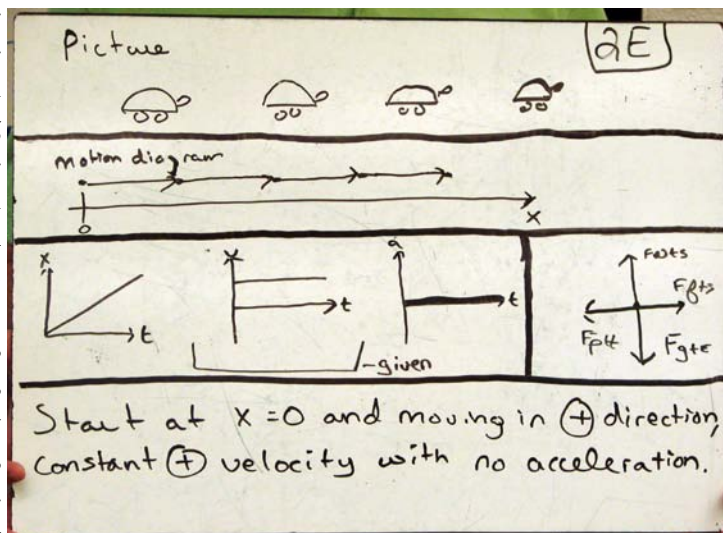 Picture
2E
motion diagram
0
x
x
t
x
t
a
t
-given
Start at x=0 and moving in ⊕ direction,
constant ⊕ velocity with no acceleration.